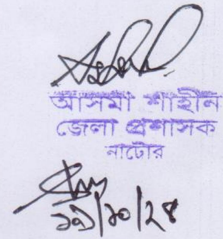 আসমা শাহীন
জেলা প্রশাসক
নাটোর
২৯/১০/২৪